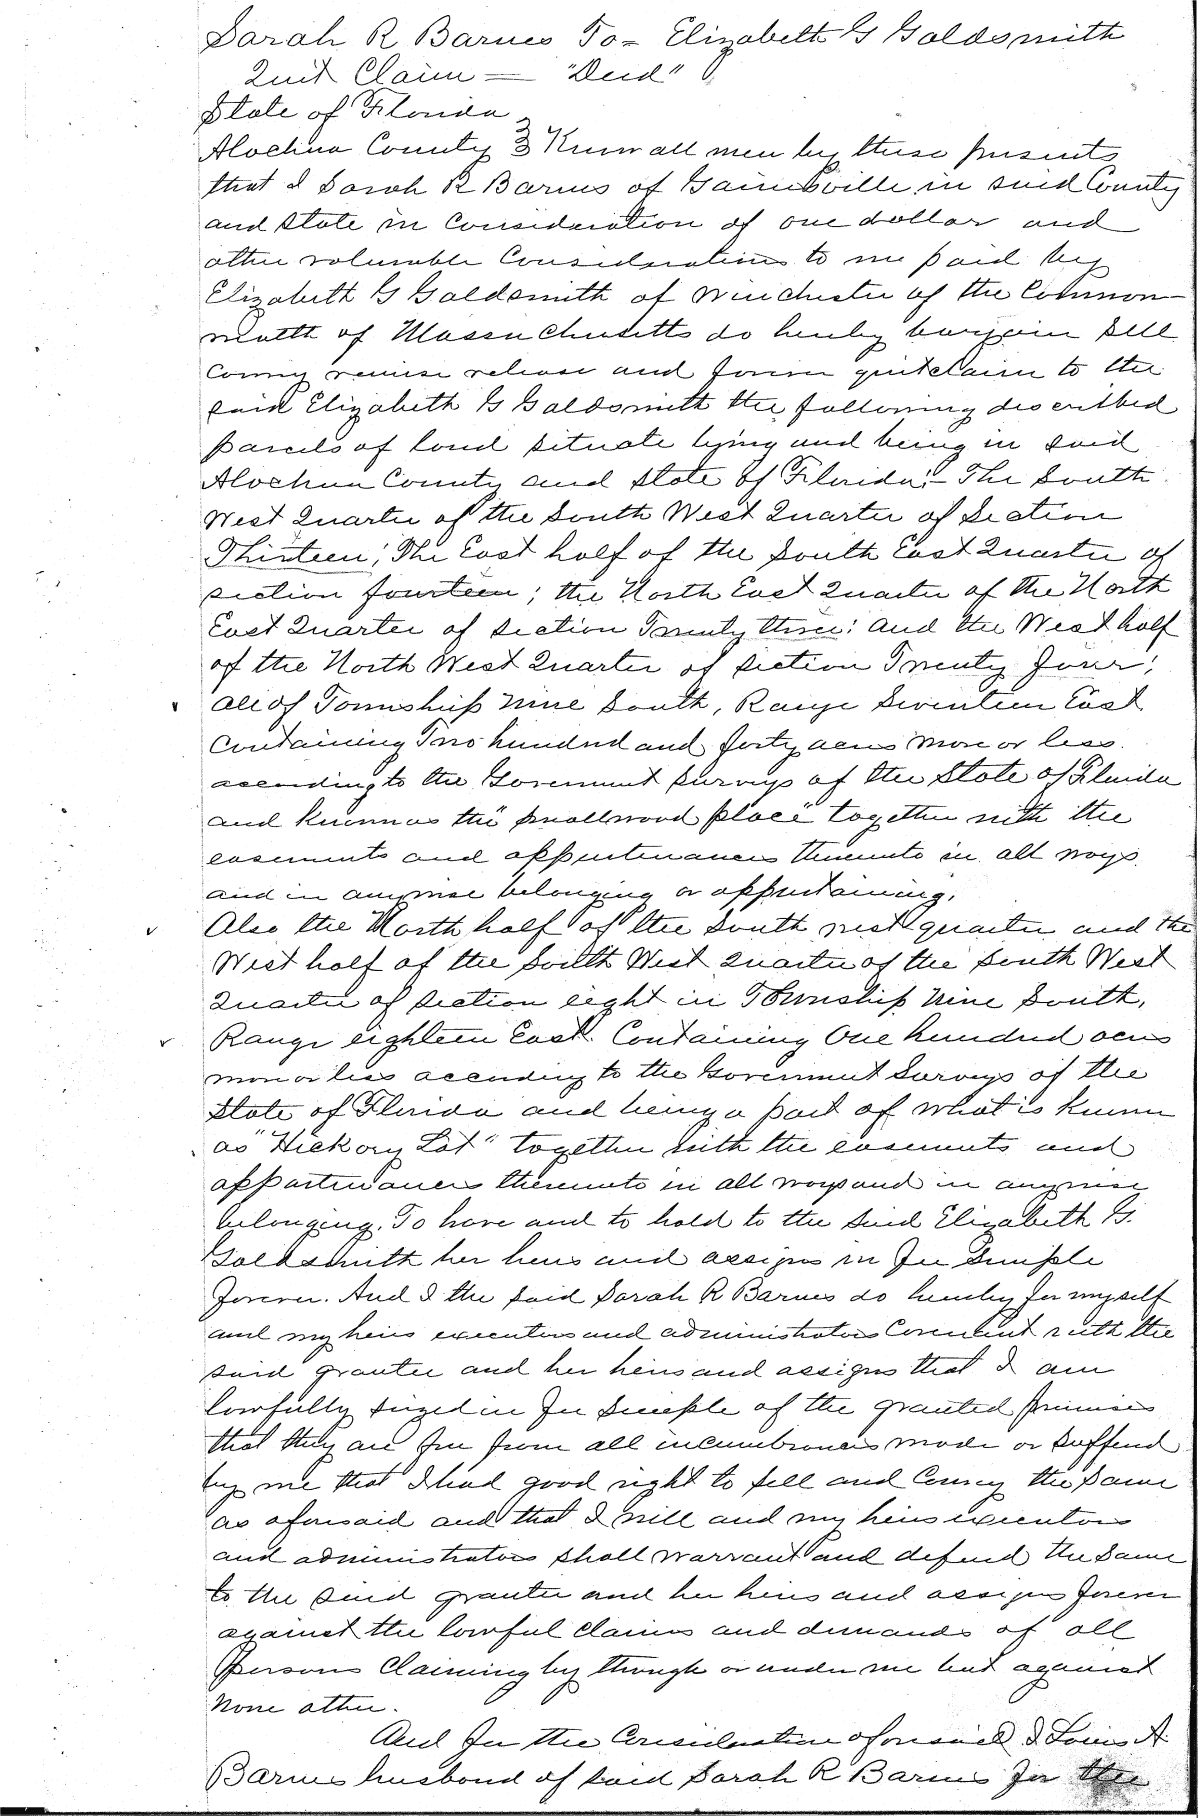 Sarah R Barnes To= Elizabeth G Goldsmith
Quit Claim = "Deed"
State of Florida
Alachua County } Know all men by these presents
that I Sarah R Barnes of Gainesville in said County
and State in Consideration of one dollar and
other valuable Considerations to me paid by
Elizabeth G Goldsmith of Winchester of the Common-
wealth of Massachusetts do hereby bargain sell
convey remise release and forever quitclaim to the
said Elizabeth G Goldsmith the following described
parcels of land situate lying and being in said
Alachua County and State of Florida:- The South
West Quarter of the South West Quarter of Section
Thirteen; The East half of the South East Quarter of
section fourteen; the North East Quarter of the North
East Quarter of section Twenty three; and the West half
of the North West Quarter of section Twenty four;
all of Township nine South, Range Seventeen East
Containing Two hundred and forty acres more or less.
according to the Goverment surveys of the State of Florida
and known as the "Smallwood place" together with the
easements and appurtenances thereunto in all ways
and in anywise belonging or appertaining.
Also the North half of the South west quarter and the
West half of the South West Quarter of the South West
Quarter of section eight in Township nine South,
Range eighteen East. Containing One hundred acres
more or less according to the Goverment Surveys of the
State of Florida and being a part of what is known
as "Hickory Lot" together with the easements and
appurtenances thereunto in all ways and in anywise
belonging. To have and to hold to the said Elizabeth G.
Goldsmith her heirs and assigns in Fee Simple
forever. And I the said Sarah R Barnes do hereby for myself
and my heirs executors and administrators Covenant with the
said grantee and her heirs and assigns that I am
lawfully seized in Fee Simple of the granted premises
that they are free from all incumbrances made or suffered
by me that I had good right to sell and Convey the same
as aforesaid and that I will and my heirs executors
and administrators shall warrant and defend the same
to the said grantee and her heirs and assigns forever
against the lawful claims and demands of all
Persons Claiming by through or under me but against
none other.
And for the Consideration aforesaid I Louis A
Barnes husband of said Sarah R Barnes for the